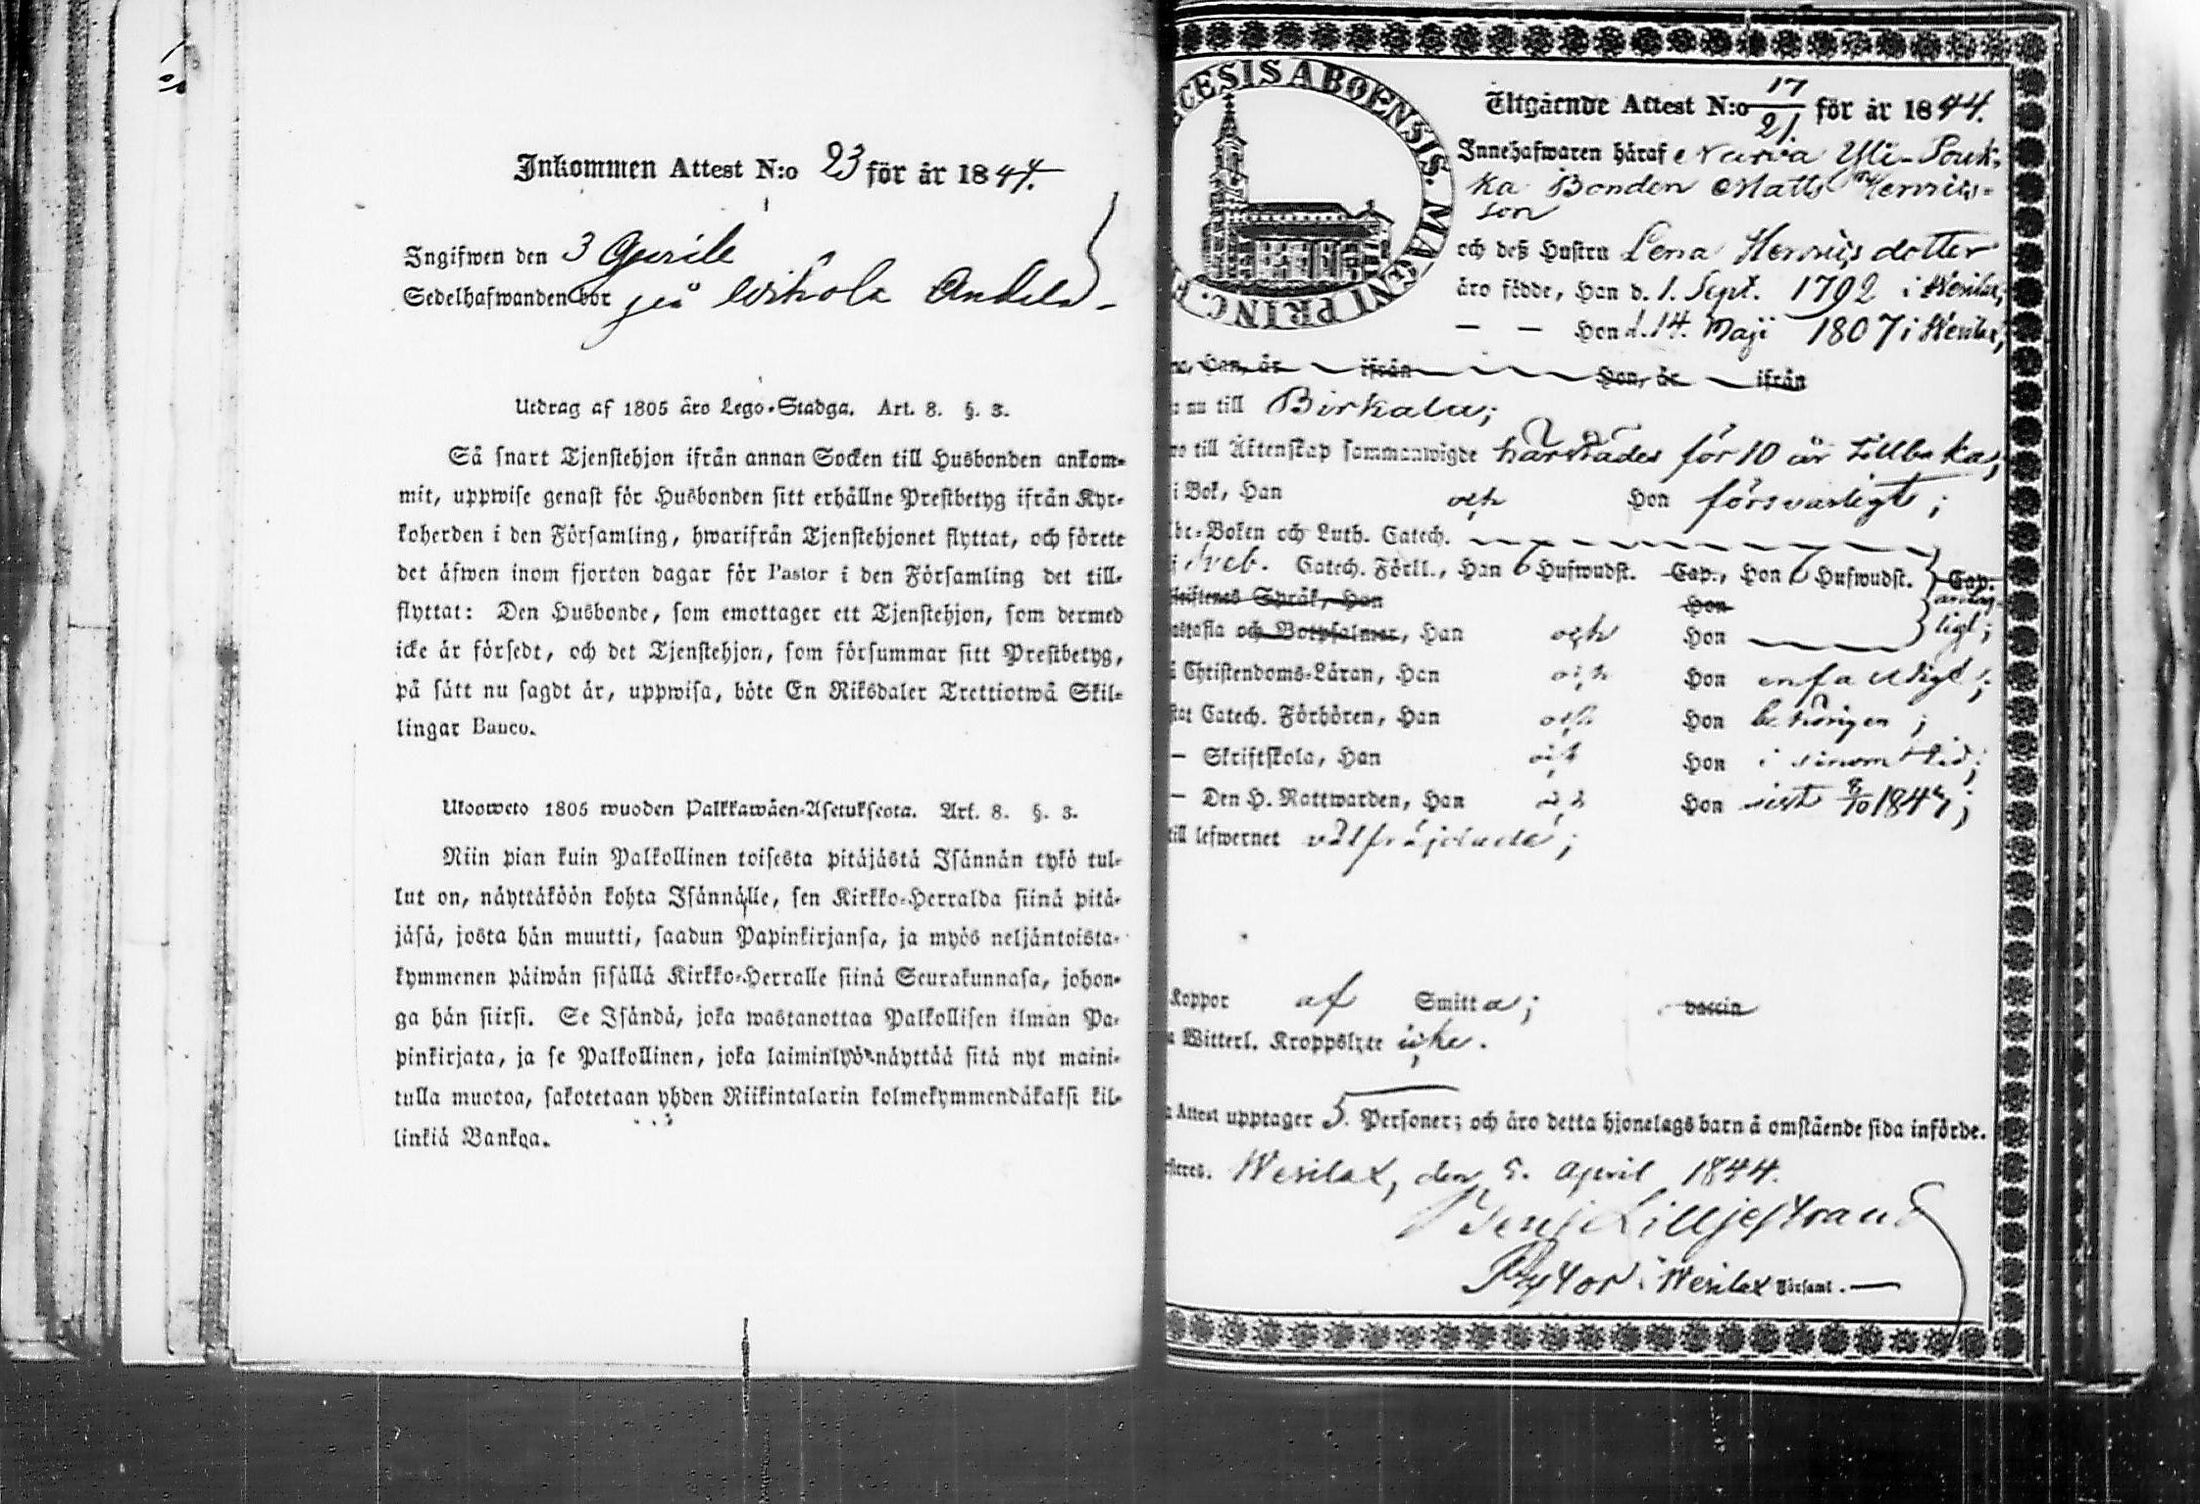 Inkommen Attest N:o 23 för år 1844.
Ingifwen den 3 Aprile
Sedelhafwanden bor på Wihola Andela
Utdrag af 1805 års Lego-Stadga. Art. 8. §. 3.
Så snart Tjenstehjon ifrån annan Socken till Husbonden ankom-
mit, uppwise genast för Husbonden sitt erhållne Prestbetyg ifrån Kyr-
koherden i den Församling, hwarifrån Tjenstehjonet flyttat, och förete
det äfwen inom fjorton dagar för Pastor i den Församling det till-
flyttat: Den Husbonde, som emottager ett Tjenstehjon, som dermed
icke är försedt, och det Tjenstehjon, som försummar sitt Prestbetyg,
på sätt nu sagdt är, uppwisa, böte En Riksdaler Trettiotwå Skil-
lingar Banco.
Ulosweto 1805 wuoden Palkkawäen-Asetuksesta. Art. 8. §. 3.
Niin pian kuin Palkollinen toisesta pitäjästä Isännän tykö tul-
lut on, näyttäköön kohta Isännälle, sen Kirkko-Herralda siinä pitä-
jäsä, josta hän muutti, saadun Papinkirjansa, ja myös neljäntoista-
kymmenen päiwän sisällä Kirkko-Herralle siinä Seurakunnasa, johon-
ga hän siirsi. Se Isändä, joka wastanottaa Palkollisen ilman Pa-
pinkirjata, ja se Palkollinen, joka laiminlyö näyttää sitä nyt maini-
tulla muotoa, sakotetaan yhden Riikintalarin kolmekymmendäkaksi kil-
linkiä Bankqa.
CESIS ABOENSIS. MAGNI PRINC. F
Utgående Attest N:o 17/21. för år 1844.
Innehafwaren häraf Narva Yli-Pouk-
ka Bonden Matts Henriks-
son
och deß Hustru Lena Henriksdotter
äro födde, Han d. 1. Sept. 1792 i Wesilax,
— — Hon d. 14. Maji 1807 i Wesilax,
Han, år ifrån Hon, år ifrån
nu till Birkala;
ro till Äktenskap sammanwigde härstädes för 10 år tillbaka;
i Bok, Han och Hon försvarligt;
be-Boken och Luth. Catech.
Sveb. Catech. Förkl., Han 6 Hufwudst. Cap., Hon 6 Hufwudst. Cap.
Skriftenes Språk, Han Hon
stafla och Botpsalmer, Han och Hon ligt;
Christendoms-Läran, Han och Hon enfaldigt;
Catech. Förhören, Han och Hon behörigen;
— Skriftskola, Han och Hon i sinom tid;
— Den H. Nattwarden, Han och Hon sist 8/10 1843;
till lefwernet välfräjdade;
Koppor af Smitta; vaccin
Witterl. Kroppslyte icke.
Attest upptager 5. Personer; och äro detta hjonelags barn å omstående sida införde.
Wesilax, den 5. April 1844.
Benj Lilljestrand
Pastor i Wesilax Församl.